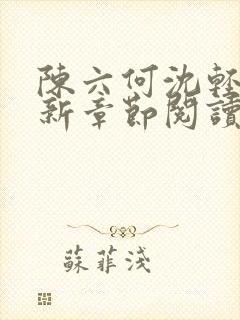 陳六何沈輕
新章節閱讀
蘇菲淺